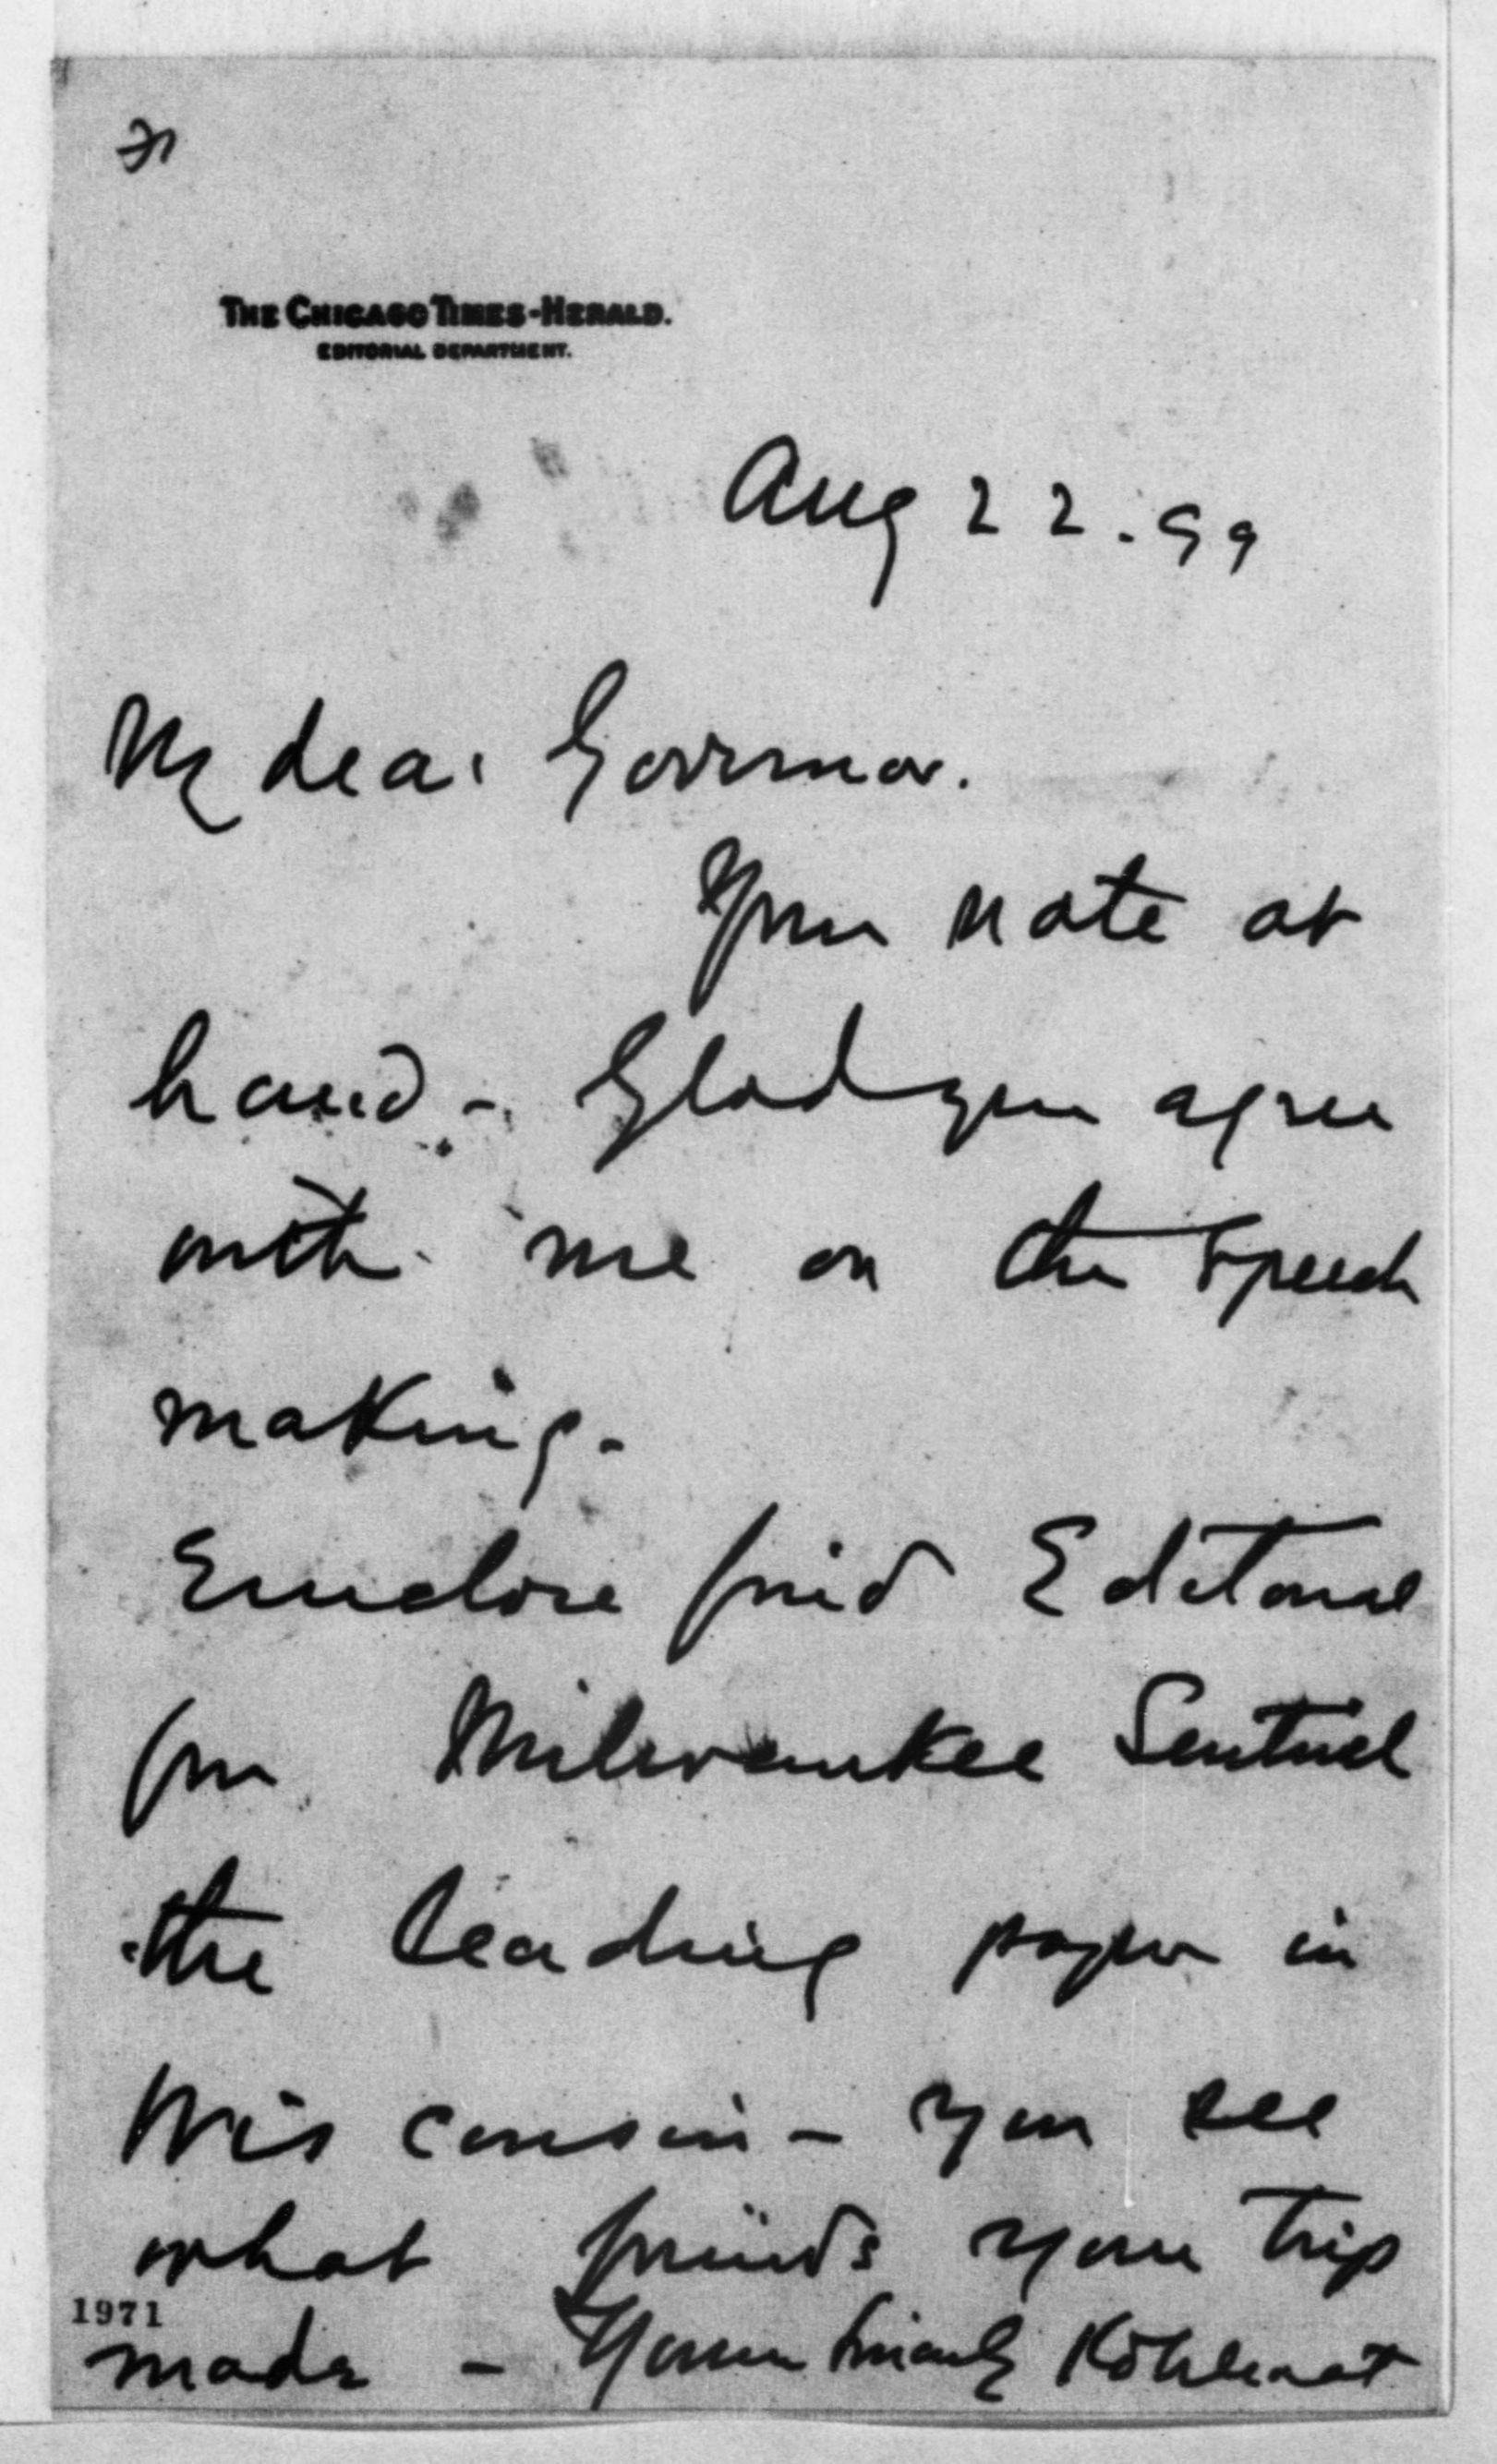 THE CHICAGO TIMES-HERALD.
EDITORIAL DEPARTMENT.
Aug 22.99
My dear Governor.
Your note at
hand - Glad you agree
with me on the speech
making.
Enclose friend Editorial
from Milwaukee Sentinel
the leading paper in
Wisconsin - you see
what friends your trip
1971
made - Yours Sincerely Kohlsaat